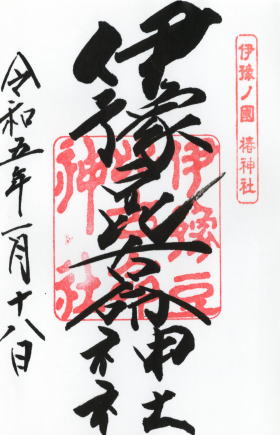 伊豫ノ國 椿神社
伊豫豆比古命神社
伊豫豆
比古命
神社
令和五年一月十八日